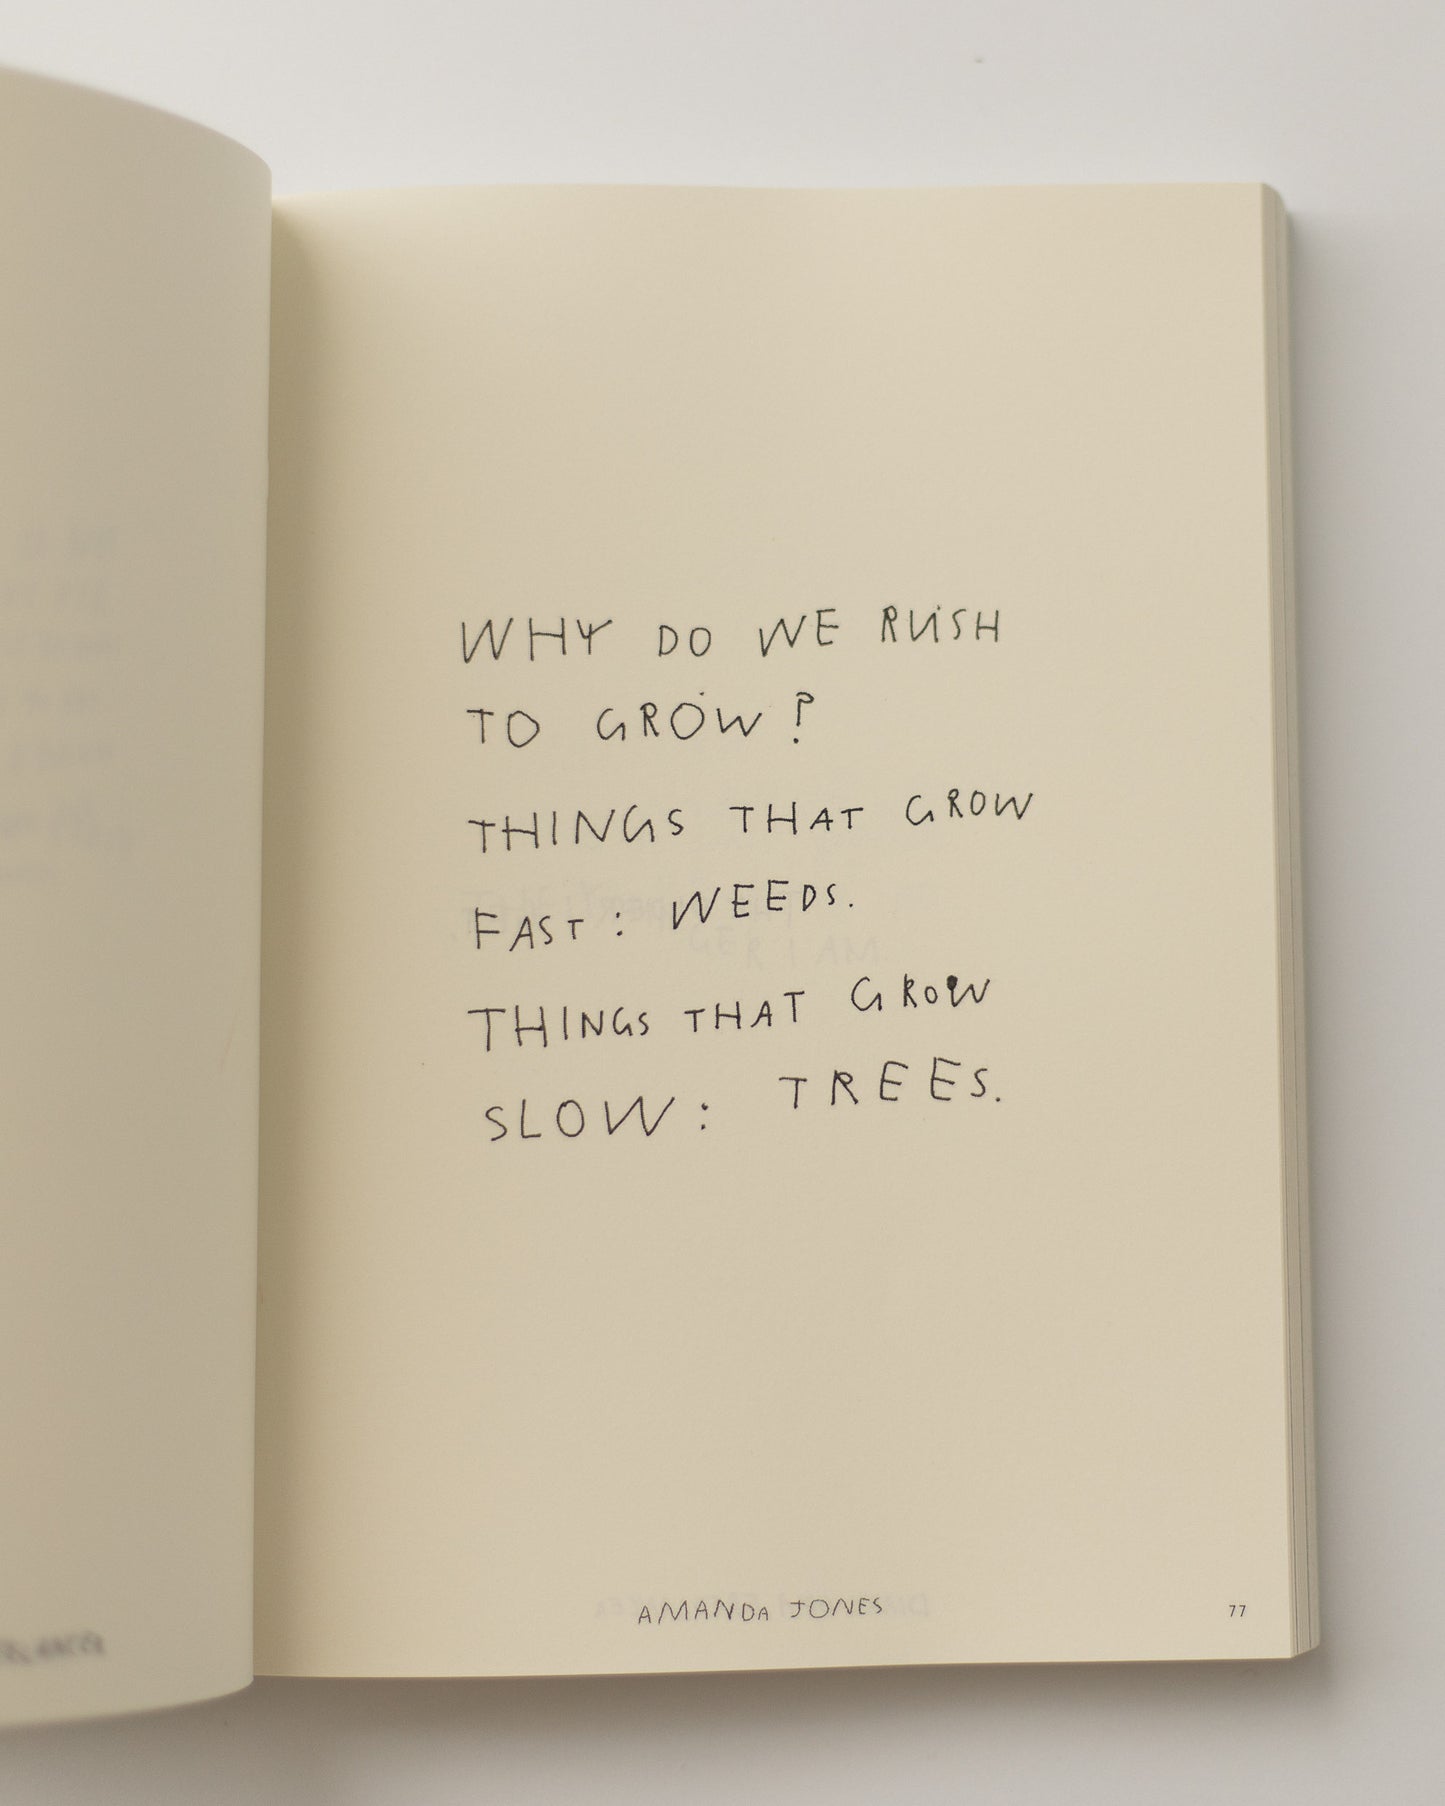 WHY DO WE RUSH
TO GROW?
THINGS THAT GROW
FAST: WEEDS.
THINGS THAT GROW
SLOW: TREES.
AMANDA JONES
77